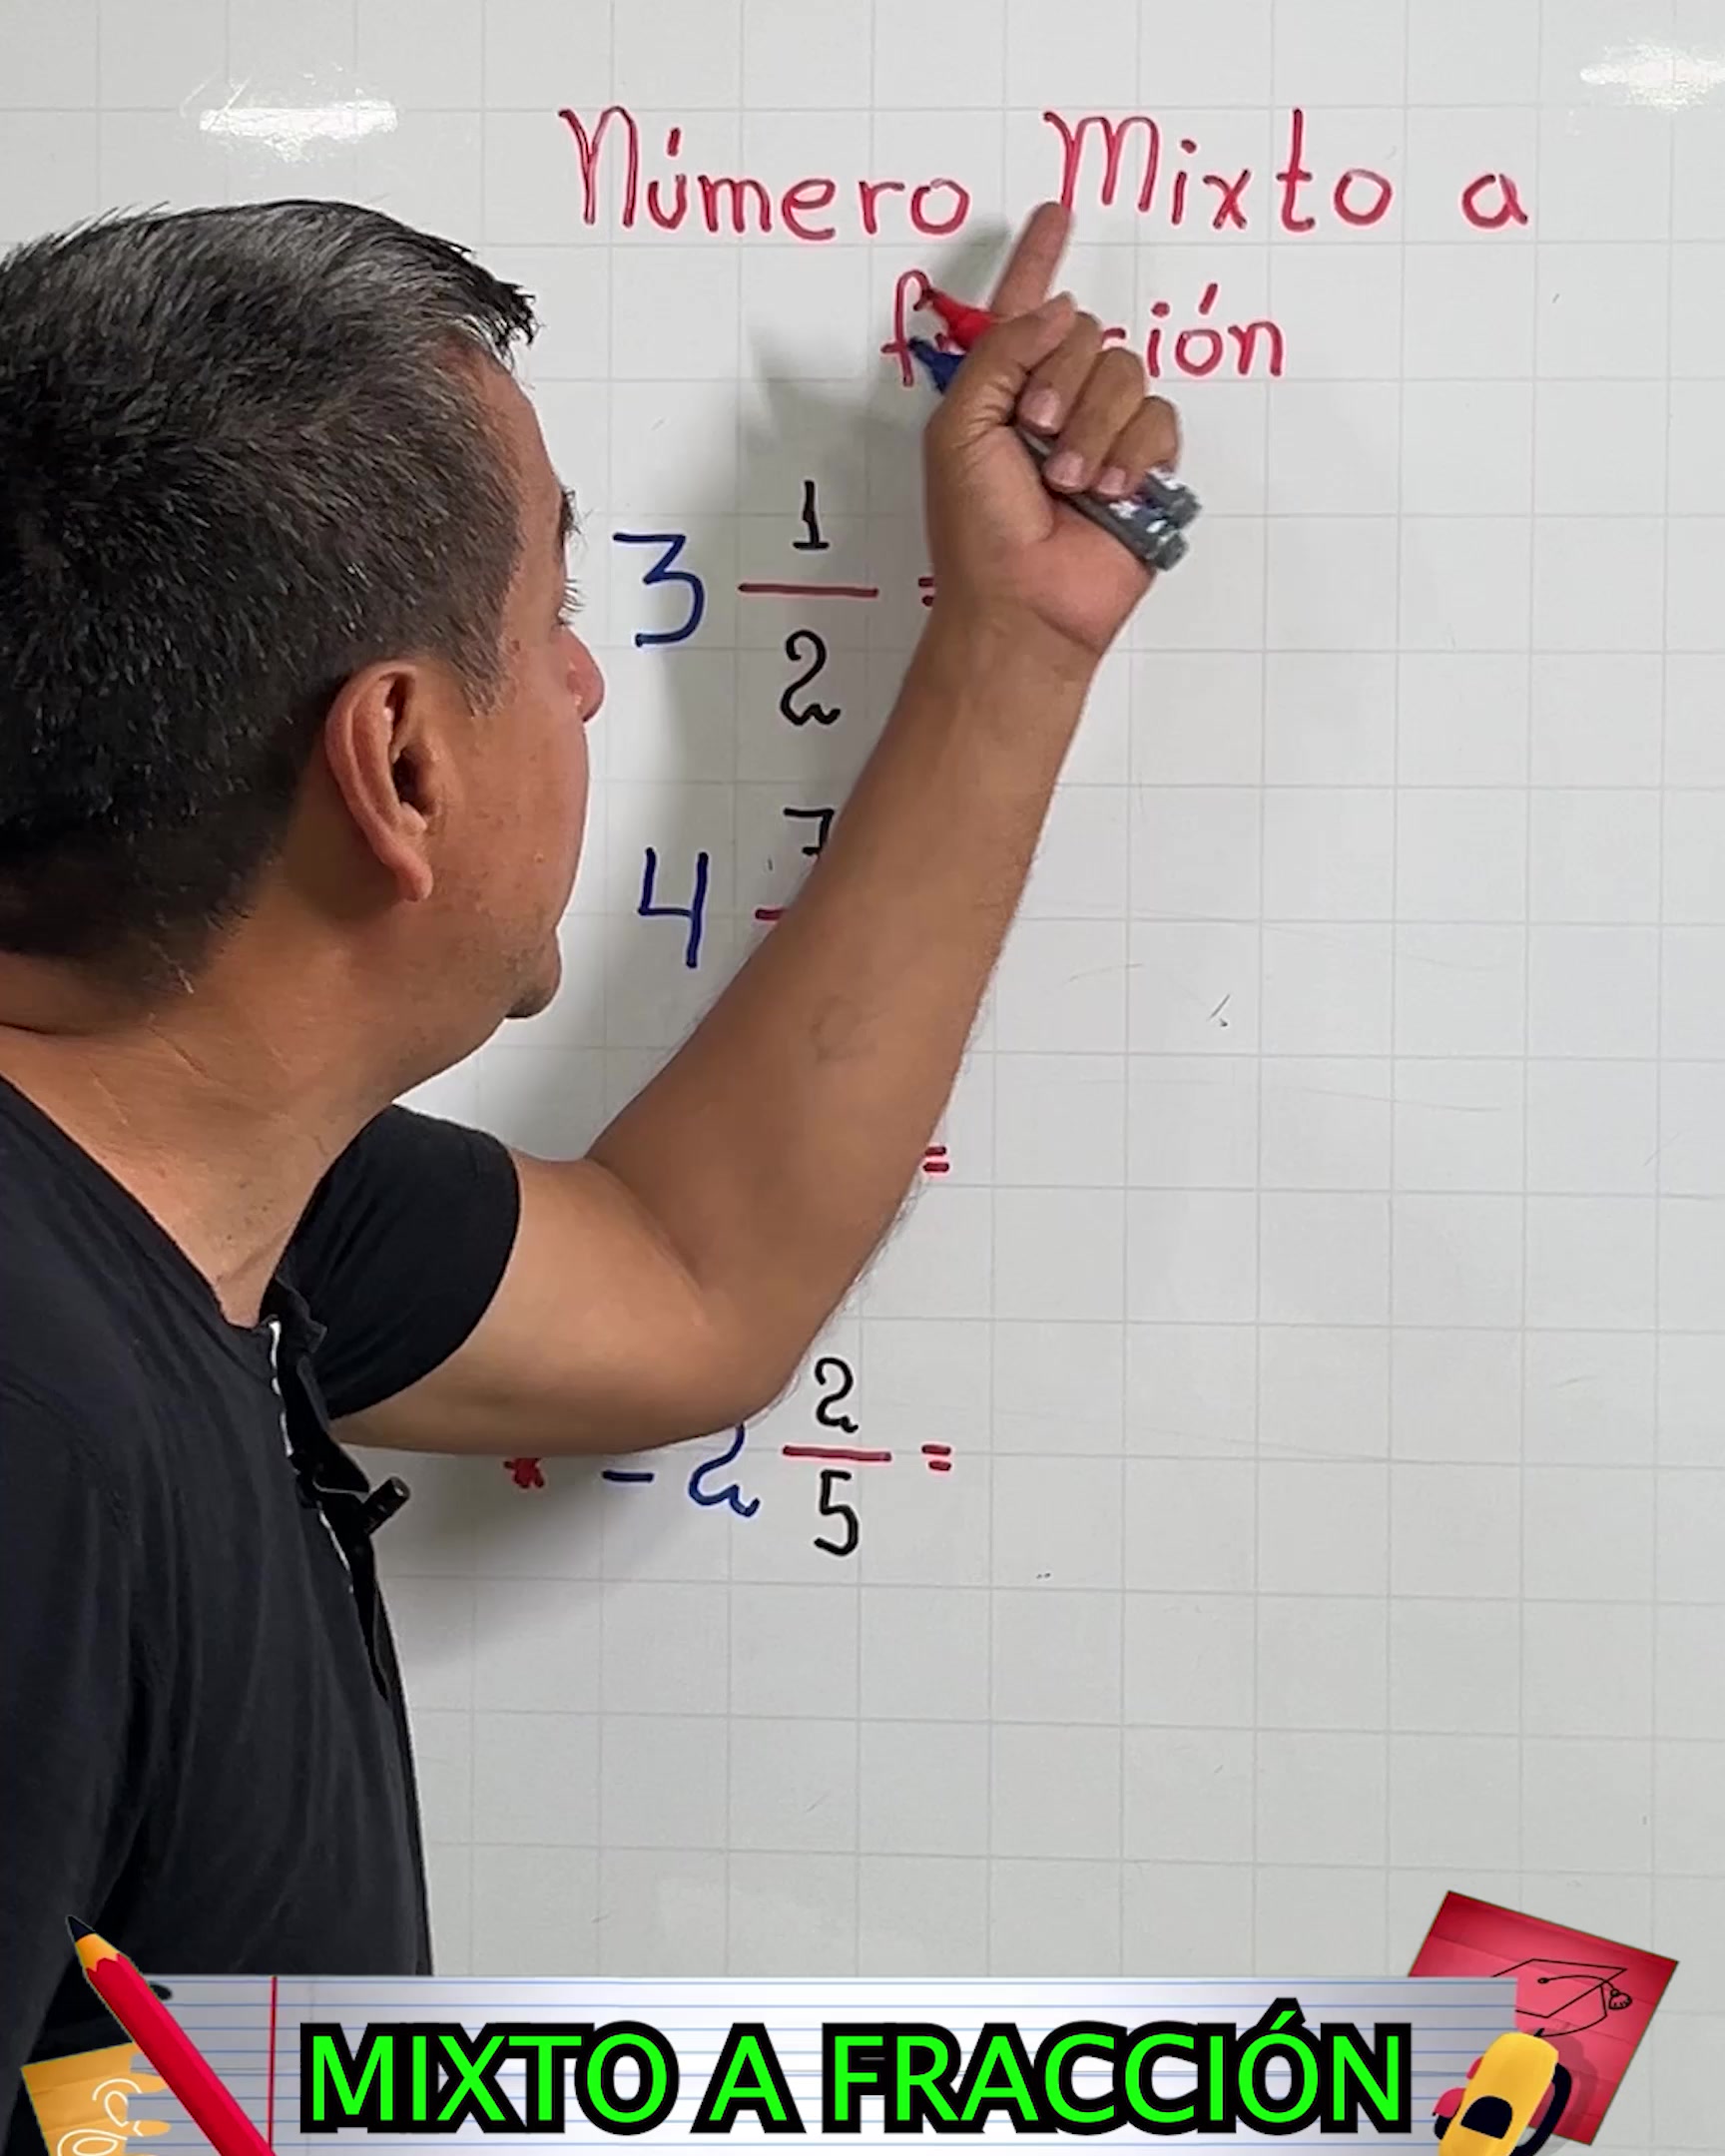 Número Mixto a
3 1/2 =
4 7
=
* - 2 2/5 =
MIXTO A FRACCIÓN